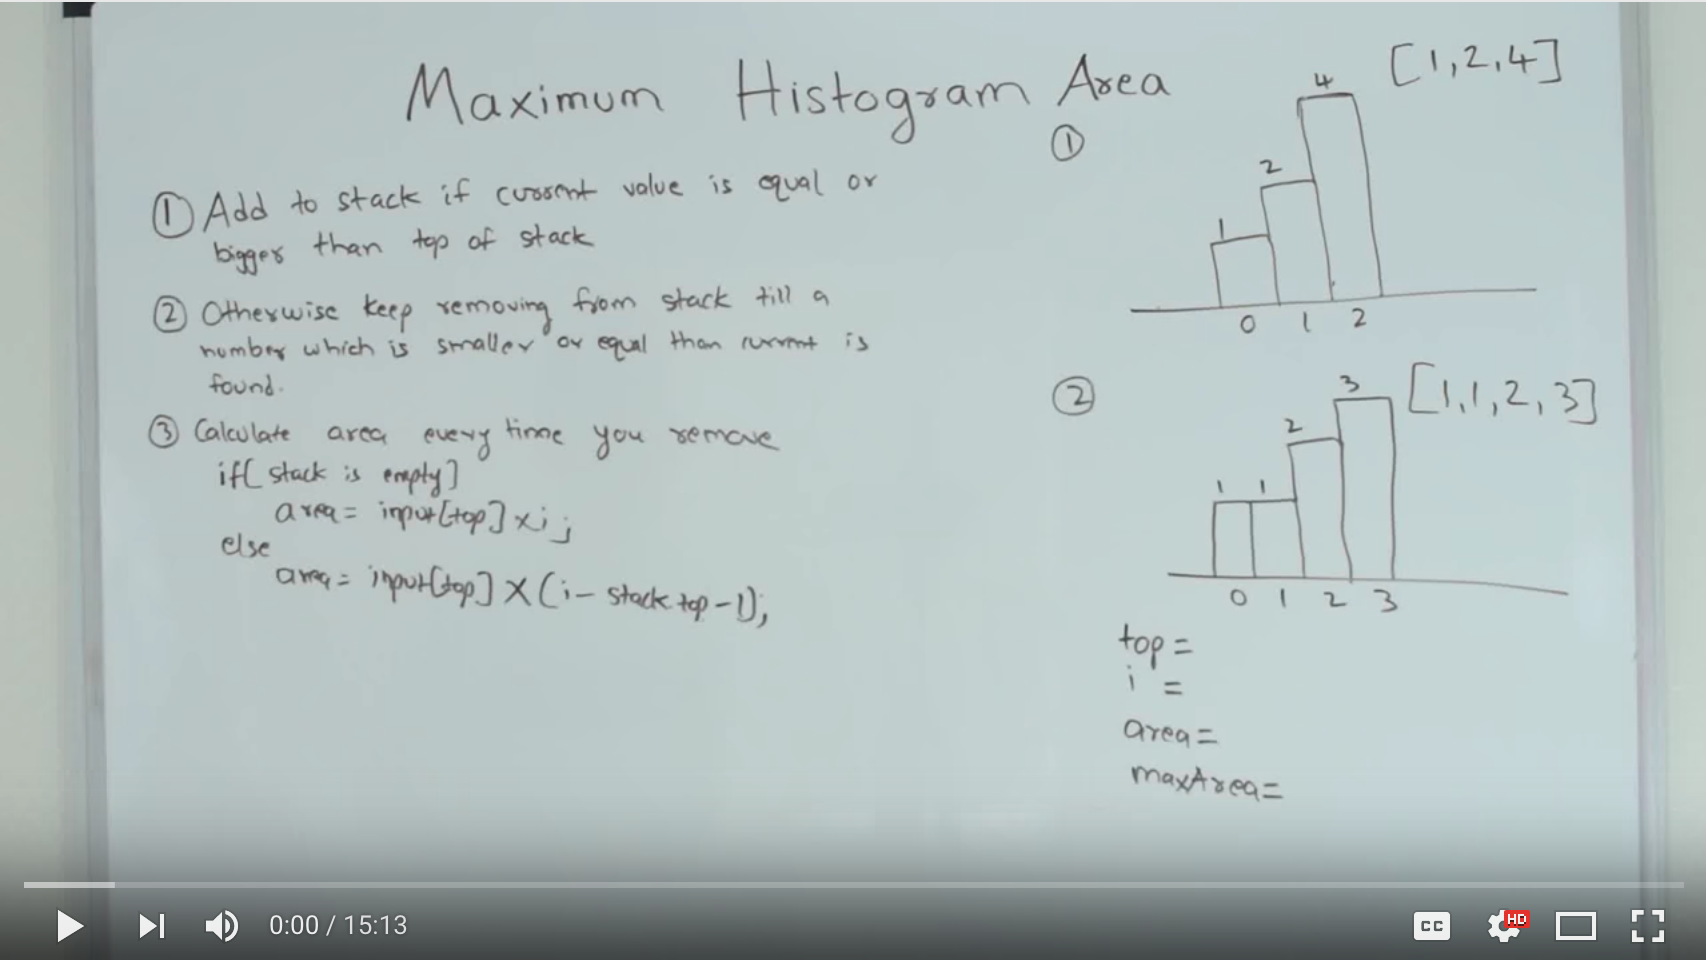 Maximum Histogram Area
① Add to stack if current value is equal or
bigger than top of stack
② Otherwise keep removing from stack till a
number which is smaller or equal than current is
found.
③ Calculate area every time you remove
if[ stack is empty]
area = input[top] x i;
else
area = input[top] X (i - stack top - 1);
①
[1,2,4]
4
2
1
0 1 2
②
[1,1,2,3]
3
2
1 1
0 1 2 3
top =
i =
area =
maxArea =
0:00 / 15:13
CC
HD